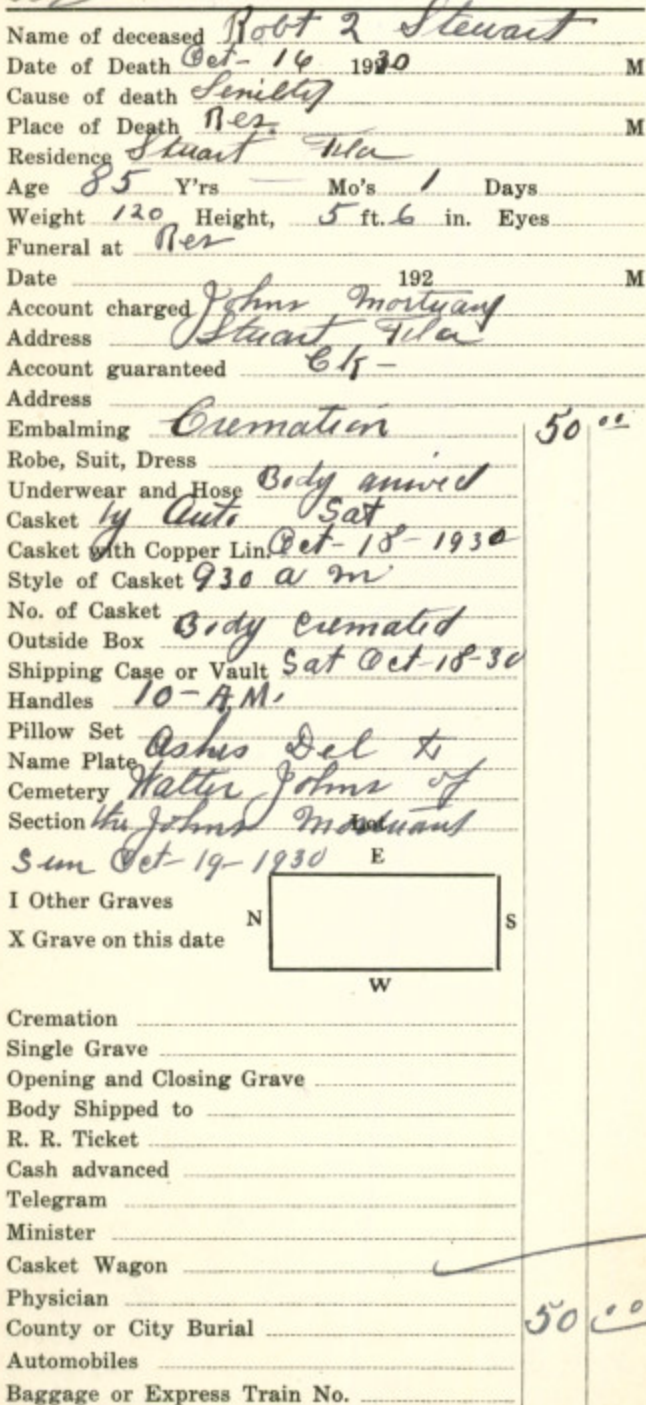 Name of deceased Robt 2 Stewart
Date of Death Oct- 16 1930 M
Cause of death Senility
Place of Death Res. M
Residence Stuart Fla
Age 85 Y'rs — Mo's 1 Days
Weight 120 Height, 5 ft. 6 in. Eyes
Funeral at Res
Date 192 M
Account charged Johns Mortuary
Address Stuart Fla
Account guaranteed Ck -
Address
Embalming Cremation 50 00
Robe, Suit, Dress
Underwear and Hose Body arrived
Casket by Auto Sat
Casket with Copper Lin. Oct- 18- 1930
Style of Casket 930 a m
No. of Casket
Outside Box Body cremated
Shipping Case or Vault Sat Oct-18-30
Handles 10 - A.M.
Pillow Set
Name Plate Ashes Del to
Cemetery Walter Johns of
Section the Johns Mortuary Lot
Sun Oct-19-1930
E
I Other Graves
N S
X Grave on this date
W
Cremation
Single Grave
Opening and Closing Grave
Body Shipped to
R. R. Ticket
Cash advanced
Telegram
Minister
Casket Wagon
Physician
County or City Burial 50 00
Automobiles
Baggage or Express Train No.